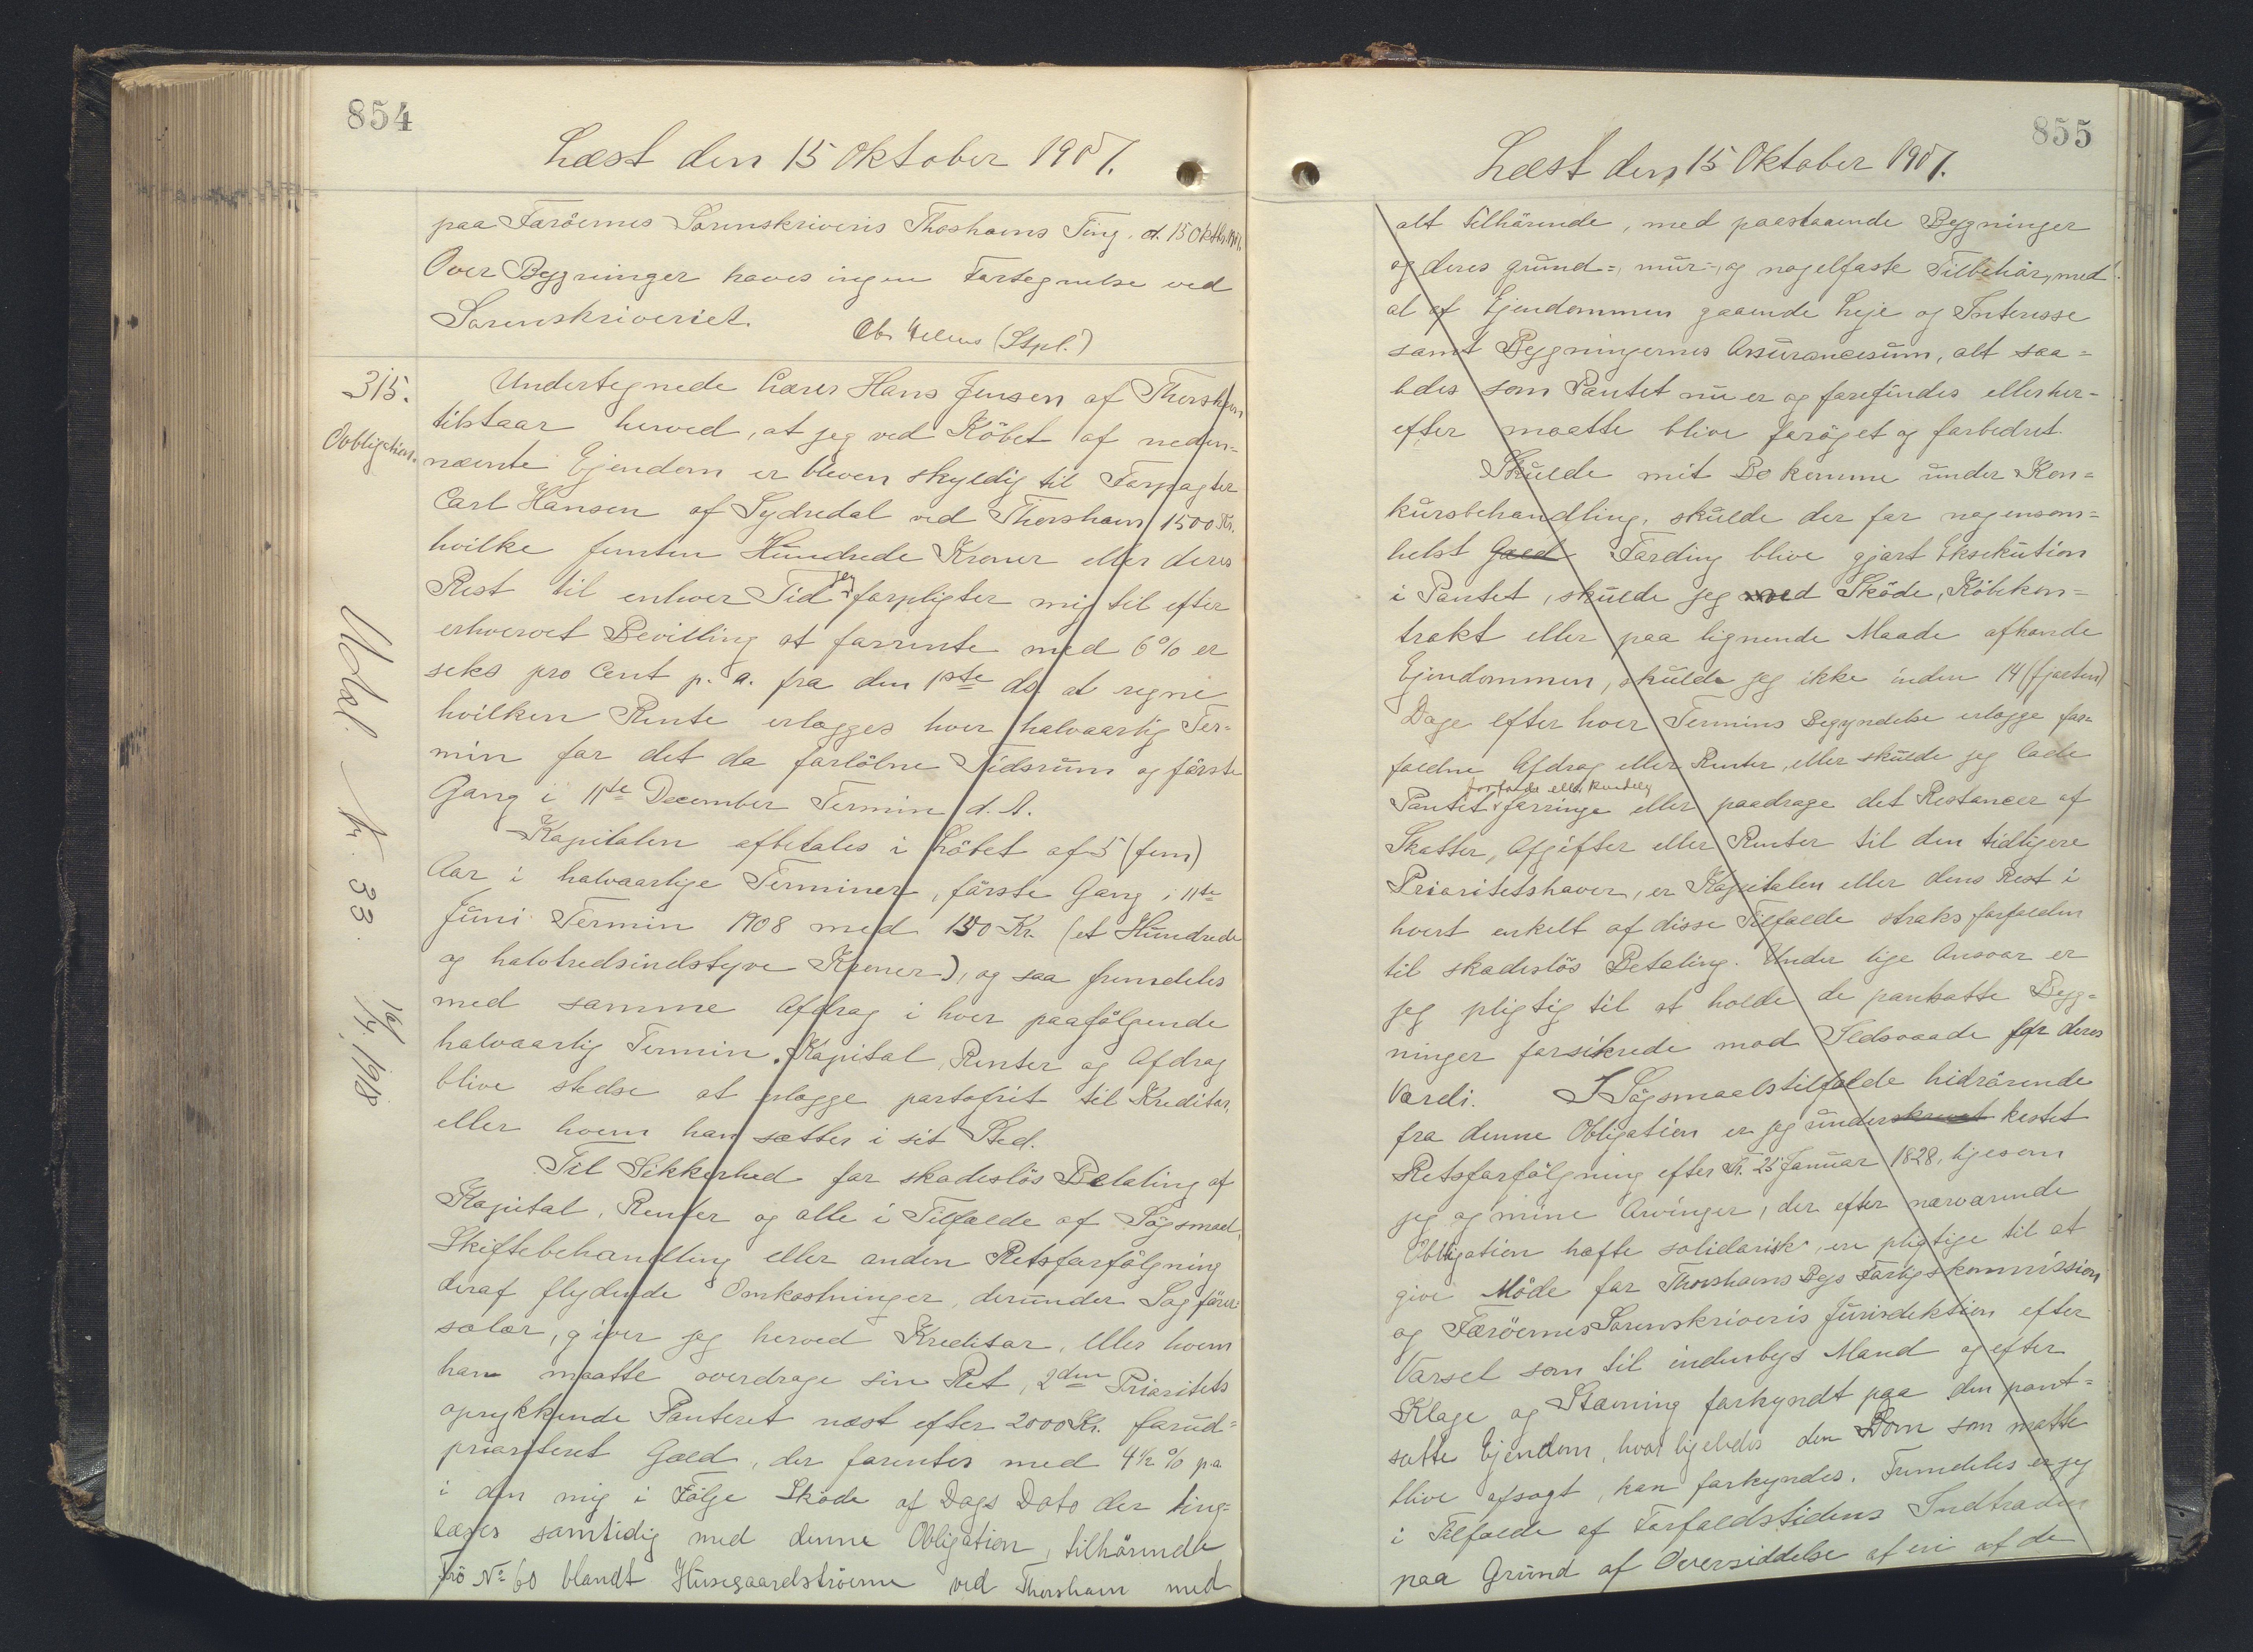 854
Læst den 15 Oktober 1907.
paa Færöernes Sorenskriveris Thorshavns Ting, d. 15 Oktbr. 1907.
Over Bygninger haves ingen Fortegnelse ved
Sorenskriveriet.
(Stpl.)
315.
Obligation.
Undertegnede Lærer Hans Jensen af Thorshavn
tilstaar herved, at jeg ved Köbet af neden-
nævnte Ejendom er bleven skyldig til Forpagter
Carl Hansen af Sydredal ved Thorshavn 1500 Kr.
hvilke femten Hundrede Kroner eller deres
Rest til enhver Tid jeg forpligter mig til efter
erhvervet Bevilling at forrente med 6% er
seks pro Cent p. a. fra den 1ste ds. at regne
hvilken Rente erlægges hver halvaarlig Ter-
min for det da forlöbne Tidsrum og förste
Gang i 11te December Termin d. A.
Kapitalen afbetales i Löbet af 5 (fem)
Aar i halvaarlige Terminer, förste Gang i 11te
Juni Termin 1908 med 150 Kr. (et Hundrede
og halvtredsindstyve Kroner), og saa fremdeles
med samme Afdrag i hver paafölgende
halvaarlig Termin. Kapital, Renter og Afdrag
blive stedse at erlægge portofrit til Kreditor,
eller hvem han sætter i sit Sted.
Til Sikkerhed for skadeslös Betaling af
Kapital, Renter og alle i Tilfælde af Sögsmaal,
Skiftebehandling eller anden Retsforfölgning
deraf flydende Omkostninger, derunder Sagförer-
salær, giver jeg herved Kreditor, eller hvem
han maatte overdrage sin Ret, 2den Prioritets
oprykkende Panteret næst efter 2000 Kr. forud-
prioriteret Gæld, der forentes med 4½ % p.a
i den mig i Fölge Sköde af Dags Dato der ting-
læses samtidig med denne Obligation, tilhörende
Trö No 60 blandt Husegaardströerne ved Thorshavn med
Nr. 33
16/4 1918
855
Læst den 15 Oktober 1907.
alt tilhörende, med paastaaende Bygninger
og deres grund-, mur-, og nagelfaste Tilbehör, med
al af Ejendommen gaaende Leje og Interesse
samt Bygningernes Assurancesum, alt saa-
ledes som Pantet nu er og forefindes eller her-
efter maatte blive foröget og forbedret.
Skulde mit Bo komme under Kon-
kursbehandling, skulde der for nogensom-
helst Gæld Fordring blive gjort Eksekution
i Pantet, skulde jeg ved Sköde, Köbekon-
trakt eller paa lignende Maade afhænde
Ejendommen, skulde jeg ikke inden 14 (fjorten)
Dage efter hver Termins Begyndelse erlægge for-
faldne Afdrag eller Renter, eller skulde jeg lade
Pantet forfalde eller kendelig forringe eller paadrage det Restancer af
Skatter, Afgifter eller Renter til den tidligere
Prioritetshaver, er Kapitalen eller dens Rest i
hvert enkelt af disse Tilfælde straks forfalden
til skadeslös Betaling. Under lige Ansvar er
jeg pligtig til at holde de pantsatte Byg-
ninger forsikrede mod Ildsvaade for deres
Værdi. I Sögsmaalstilfælde hidrörende
fra denne Obligation er jeg underskrevet kastet
Retsforfölgning efter Fr. 25 Januar 1828, ligesom
jeg og mine Arvinger, der efter nærværende
Obligation hæfte solidarisk, ere pligtige til at
give Möde for Thorshavns Bys Forligskommission
og Færöernes Sorenskriveris Jurisdiktion efter
Varsel som til indenbys Mand og efter
Klage og Stævning forkyndt paa den pant-
satte Ejendom, hvor ligeledes den Dom som matte
blive afsagt, kan forkyndes. Fremdeles er jeg
i Tilfælde af Forfaldstidens Indtræden
paa Grund af Oversiddelse af en af de